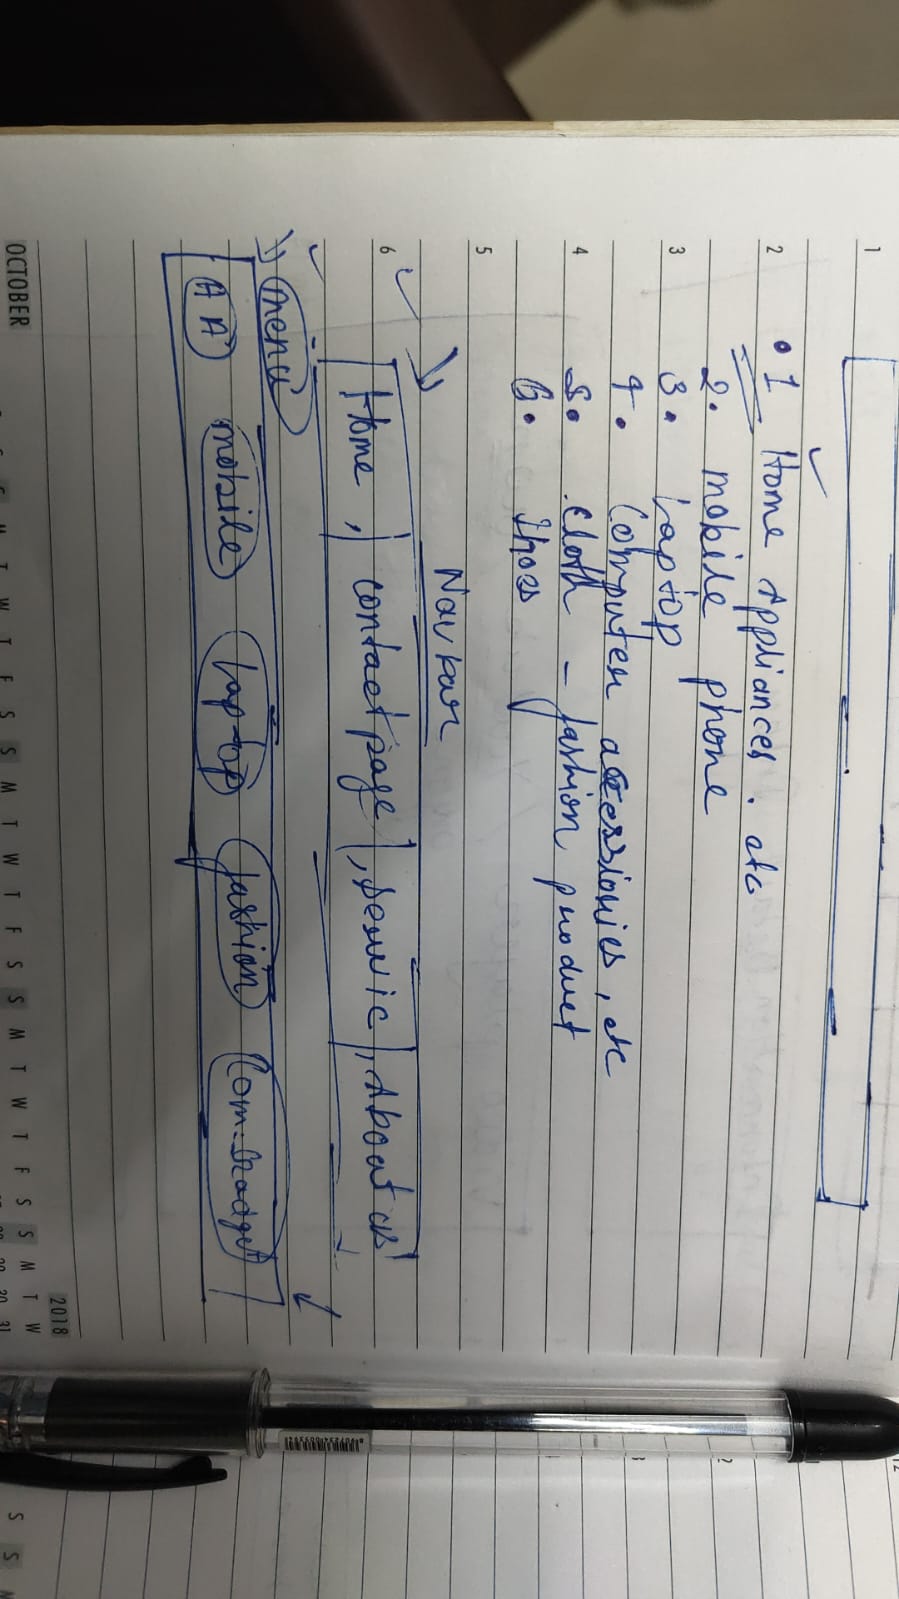 1
2
• 1 Home Appliances . etc
2. mobile phone
3
3. Laptop
4. Computer accessiories , etc
4
5. Cloth - fashion product
6. Shoes
5
Navbar
6
Home , contact page , servic , About us
menu
HA mobile Laptop fashion Com:
2018
OCTOBER
S M T W T F S S M T W T F S S M T W
29 30 31
S S